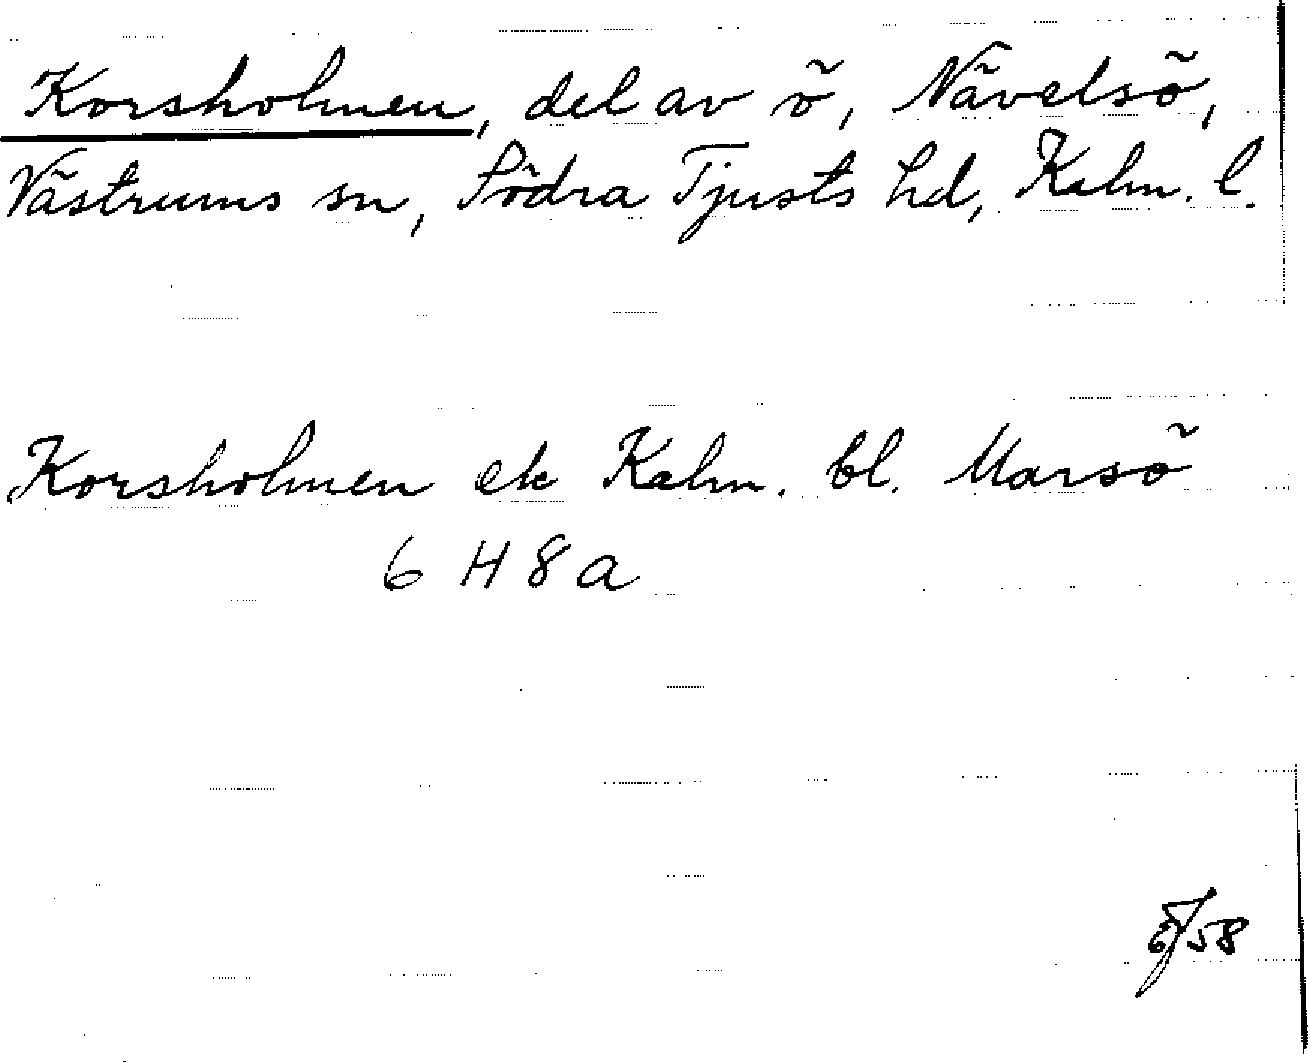 Korsholmen, del av ö, Nävelsö,
Västrums sn, Södra Tjusts hd, Kalm. l.
Korsholmen ek Kalm. bl. Marsö
6 H 8 a
58